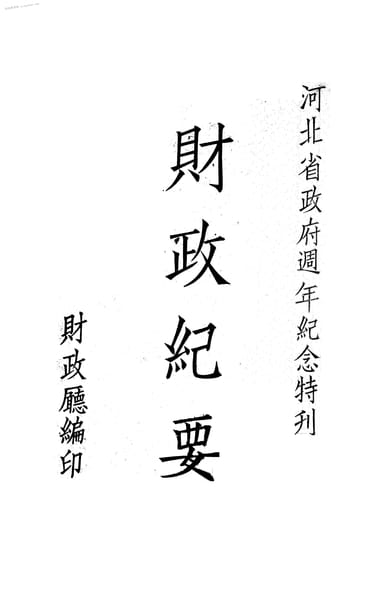 河北省政府週年紀念特刊
財政紀要
財政廳編印